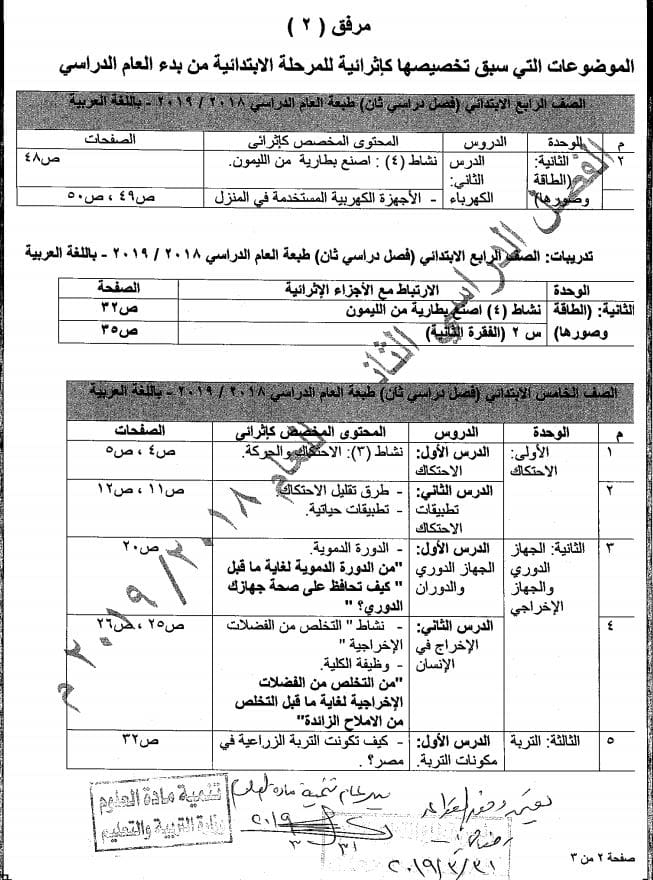 مرفق ( ٢ )
الموضوعات التي سبق تخصيصها كإثرائية للمرحلة الابتدائية من بدء العام الدراسي
الصف الرابع الابتدائي (فصل دراسي ثان) طبعة العام الدراسي ٢٠١٨ / ٢٠١٩ - باللغة العربية
م الوحدة الدروس المحتوى المخصص كإثرائي الصفحات
٢ الثانية: الدرس نشاط (٤) : اصنع بطارية من الليمون. ص٤٨
(الطاقة الثاني:
وصورها) الكهرباء - الأجهزة الكهربية المستخدمة في المنزل ص٤٩ ، ص٥٠
تدريبات: الصف الرابع الابتدائي (فصل دراسي ثان) طبعة العام الدراسي ٢٠١٨ / ٢٠١٩ - باللغة العربية
الوحدة الارتباط مع الأجزاء الإثرائية الصفحة
الثانية: (الطاقة نشاط (٤) اصنع بطارية من الليمون ص٣٢
وصورها) س ٢ (الفقرة الثانية) ص٣٥
الصف الخامس الابتدائي (فصل دراسي ثان) طبعة العام الدراسي ٢٠١٨ / ٢٠١٩ - باللغة العربية
م الوحدة الدروس المحتوى المخصص كإثرائي الصفحات
١ الأولى: الدرس الأول: نشاط (٣): الاحتكاك والحركة. ص٤ ، ص٥
الاحتكاك الاحتكاك
٢ الدرس الثاني: - طرق تقليل الاحتكاك. ص١١ ، ص١٢
تطبيقات - تطبيقات حياتية.
الاحتكاك
٣ الثانية: الجهاز الدرس الأول: - الدورة الدموية. ص٢٠
الدوري الجهاز الدوري "من الدورة الدموية لغاية ما قبل
والجهاز والدوران " كيف تحافظ على صحة جهازك
الإخراجي الدوري؟ "
٤ الدرس الثاني: - نشاط " التخلص من الفضلات ص٢٥ ، ص٢٦
الإخراج في الإخراجية "
الإنسان - وظيفة الكلية.
"من التخلص من الفضلات
الإخراجية لغاية ما قبل التخلص
من الاملاح الزائدة"
٥ الثالثة: التربة الدرس الأول: - كيف تكونت التربة الزراعية في ص٣٢
مكونات التربة. مصر؟ .
الفصل الدراسي الثاني للعام ٢٠١٨/٢٠١٩ م
تنمية مادة العلوم
وزارة التربية والتعليم
مدير عام تنمية مادة العلوم
٢٠١٩
٣١ ٣
٢٠١٩/٣/٣١
صفحة ٢ من ٣